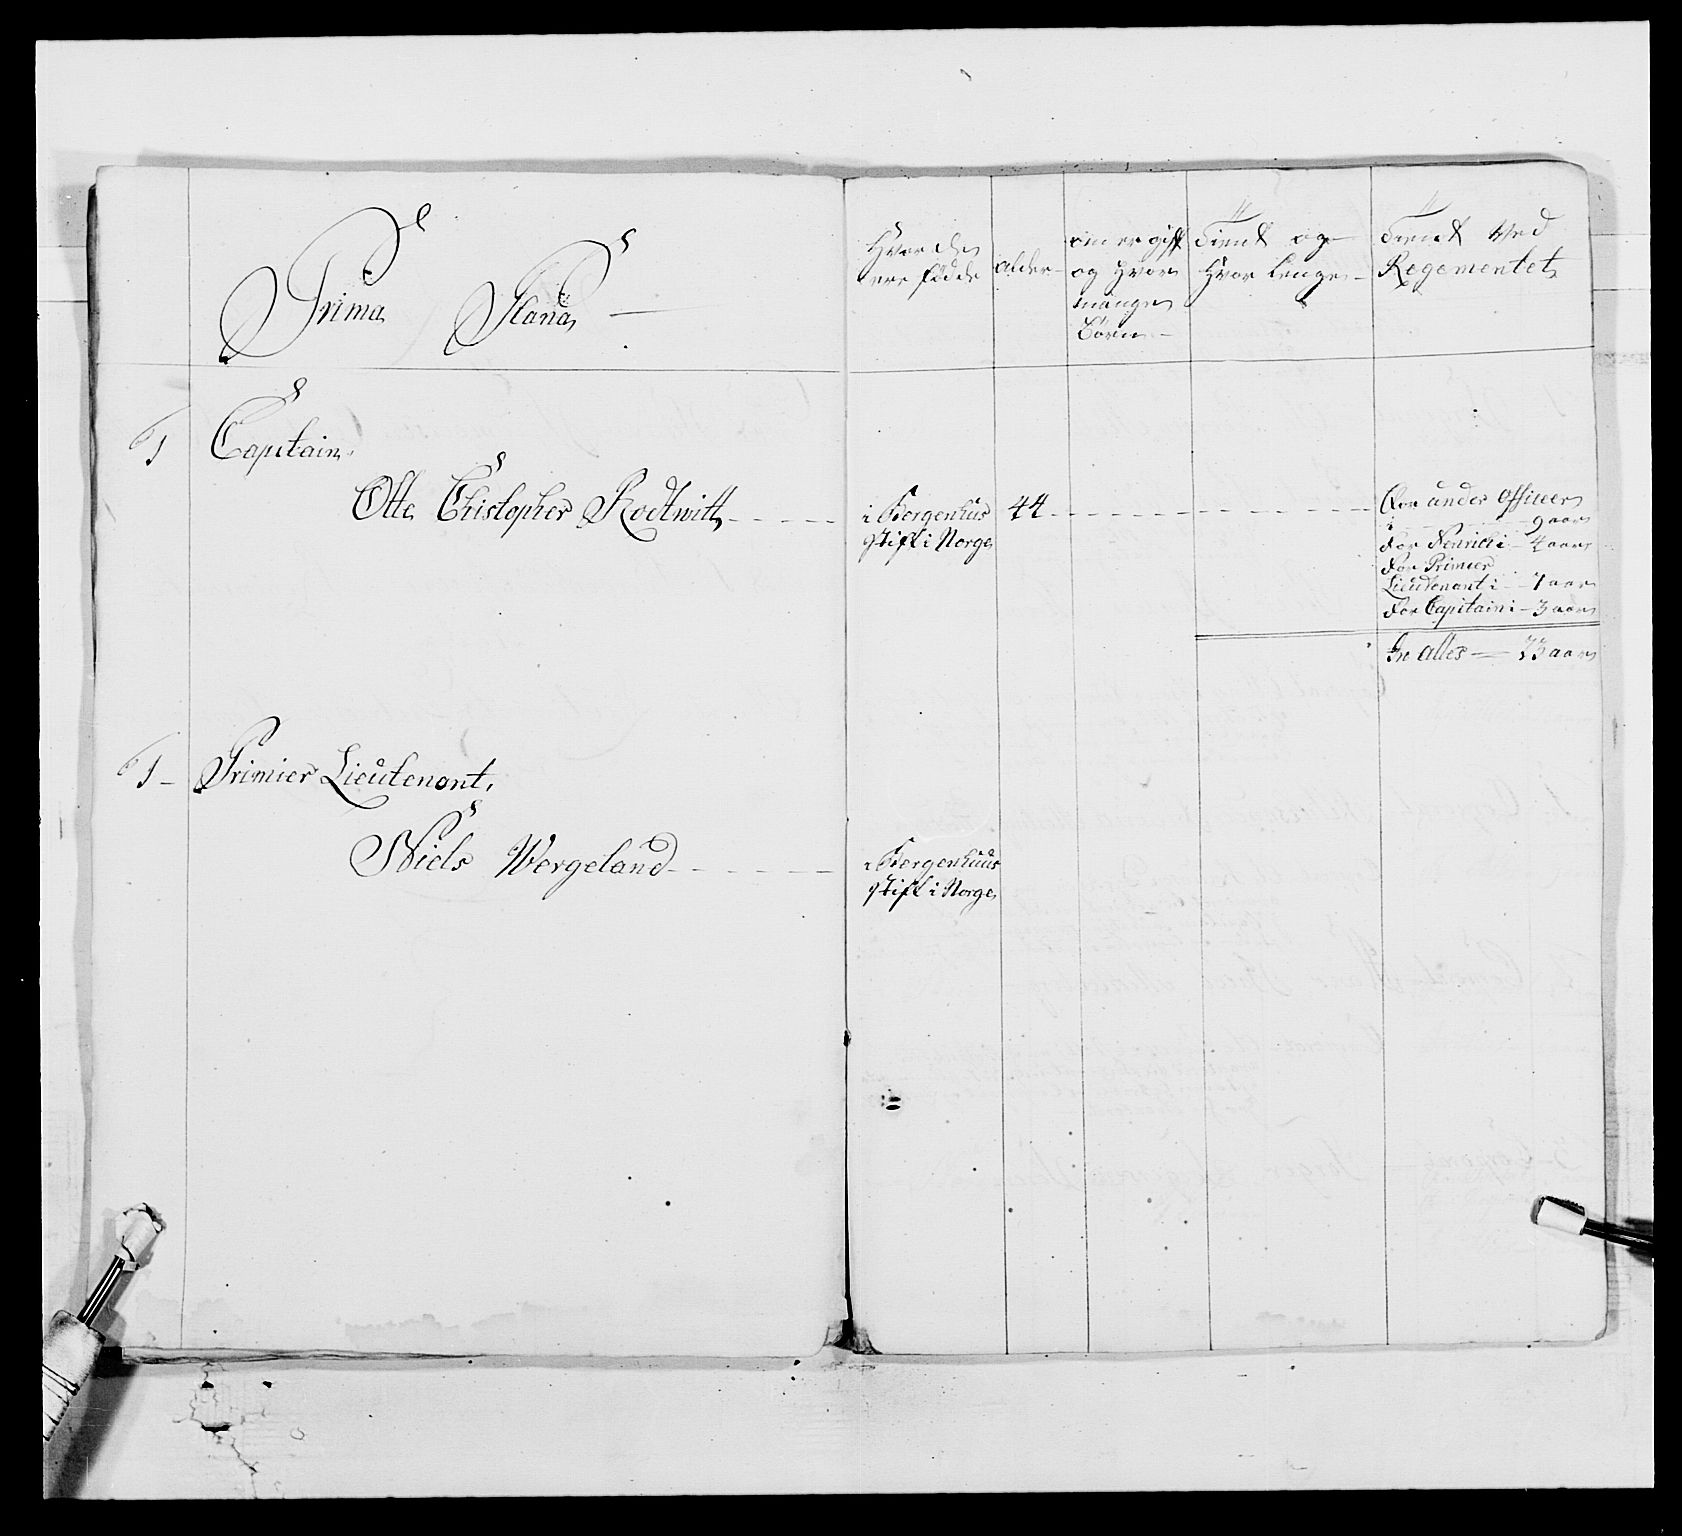 Prima Plana
Hvor de
ere fødde
alder
om er gift
og hvor
mange
Børn
Tient og
hvor lenge
Tient Ved
Regementet
1 Capitain
Otte Christopher Rodtwitt
i Bergenhus
Stift i Norge
44
For under officeer
i 9 aar
For Fenrich i 4 aar
For Primier
Lieutenant i 7 aar
For Capitain i 3 aar
In alles 23 aar
1 Primier Lieutenant,
Niels Wergeland
i Bergenhuus
Stift i Norge